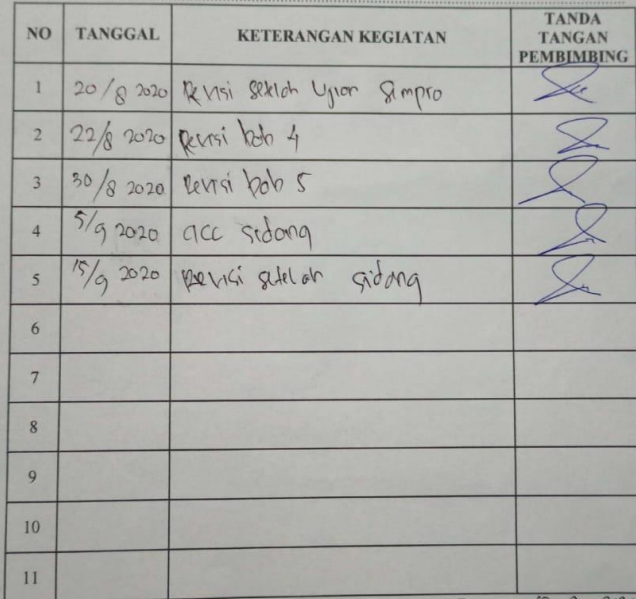 NO TANGGAL KETERANGAN KEGIATAN TANDA TANGAN PEMBIMBING
1 20/8 2020 Revisi setelah Ujian Sempro
2 22/8 2020 Revisi bab 4
3 30/8 2020 Revisi bab 5
4 5/9 2020 acc sidang
5 15/9 2020 Revisi setelah sidang
6
7
8
9
10
11